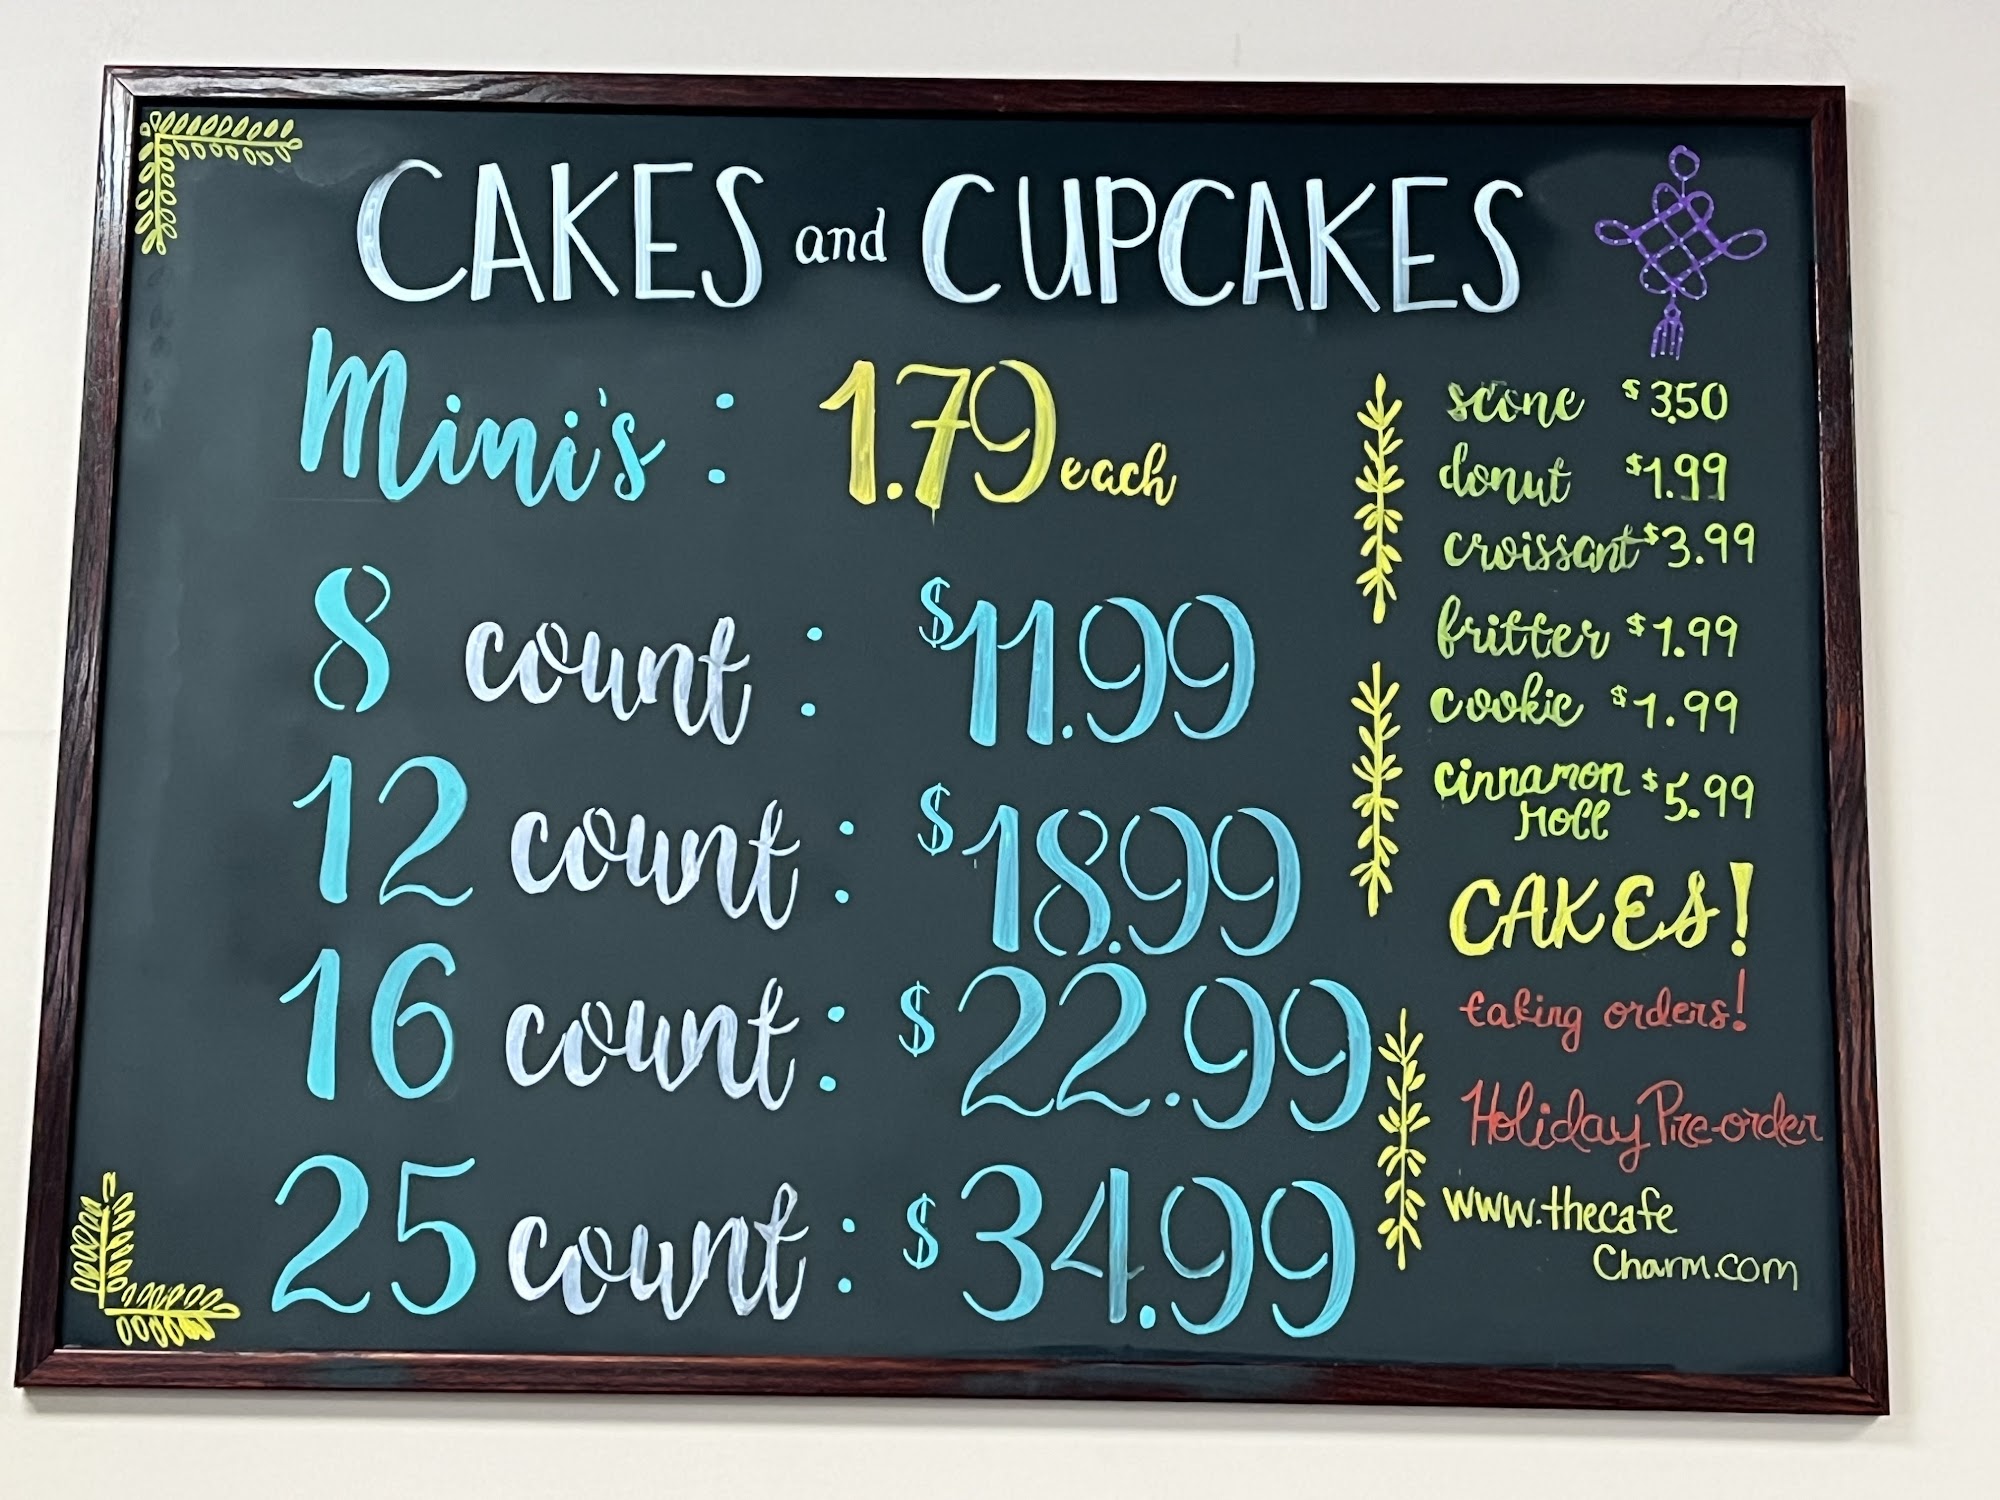 CAKES and CUPCAKES
Mini's : 1.79 each
8 count : $11.99
12 count : $18.99
16 count : $22.99
25 count : $34.99
scone $3.50
donut $1.99
croissant $3.99
fritter $1.99
cookie $1.99
cinnamon roll $5.99
CAKES!
taking orders!
Holiday Pre-order
www.thecafe
Charm.com